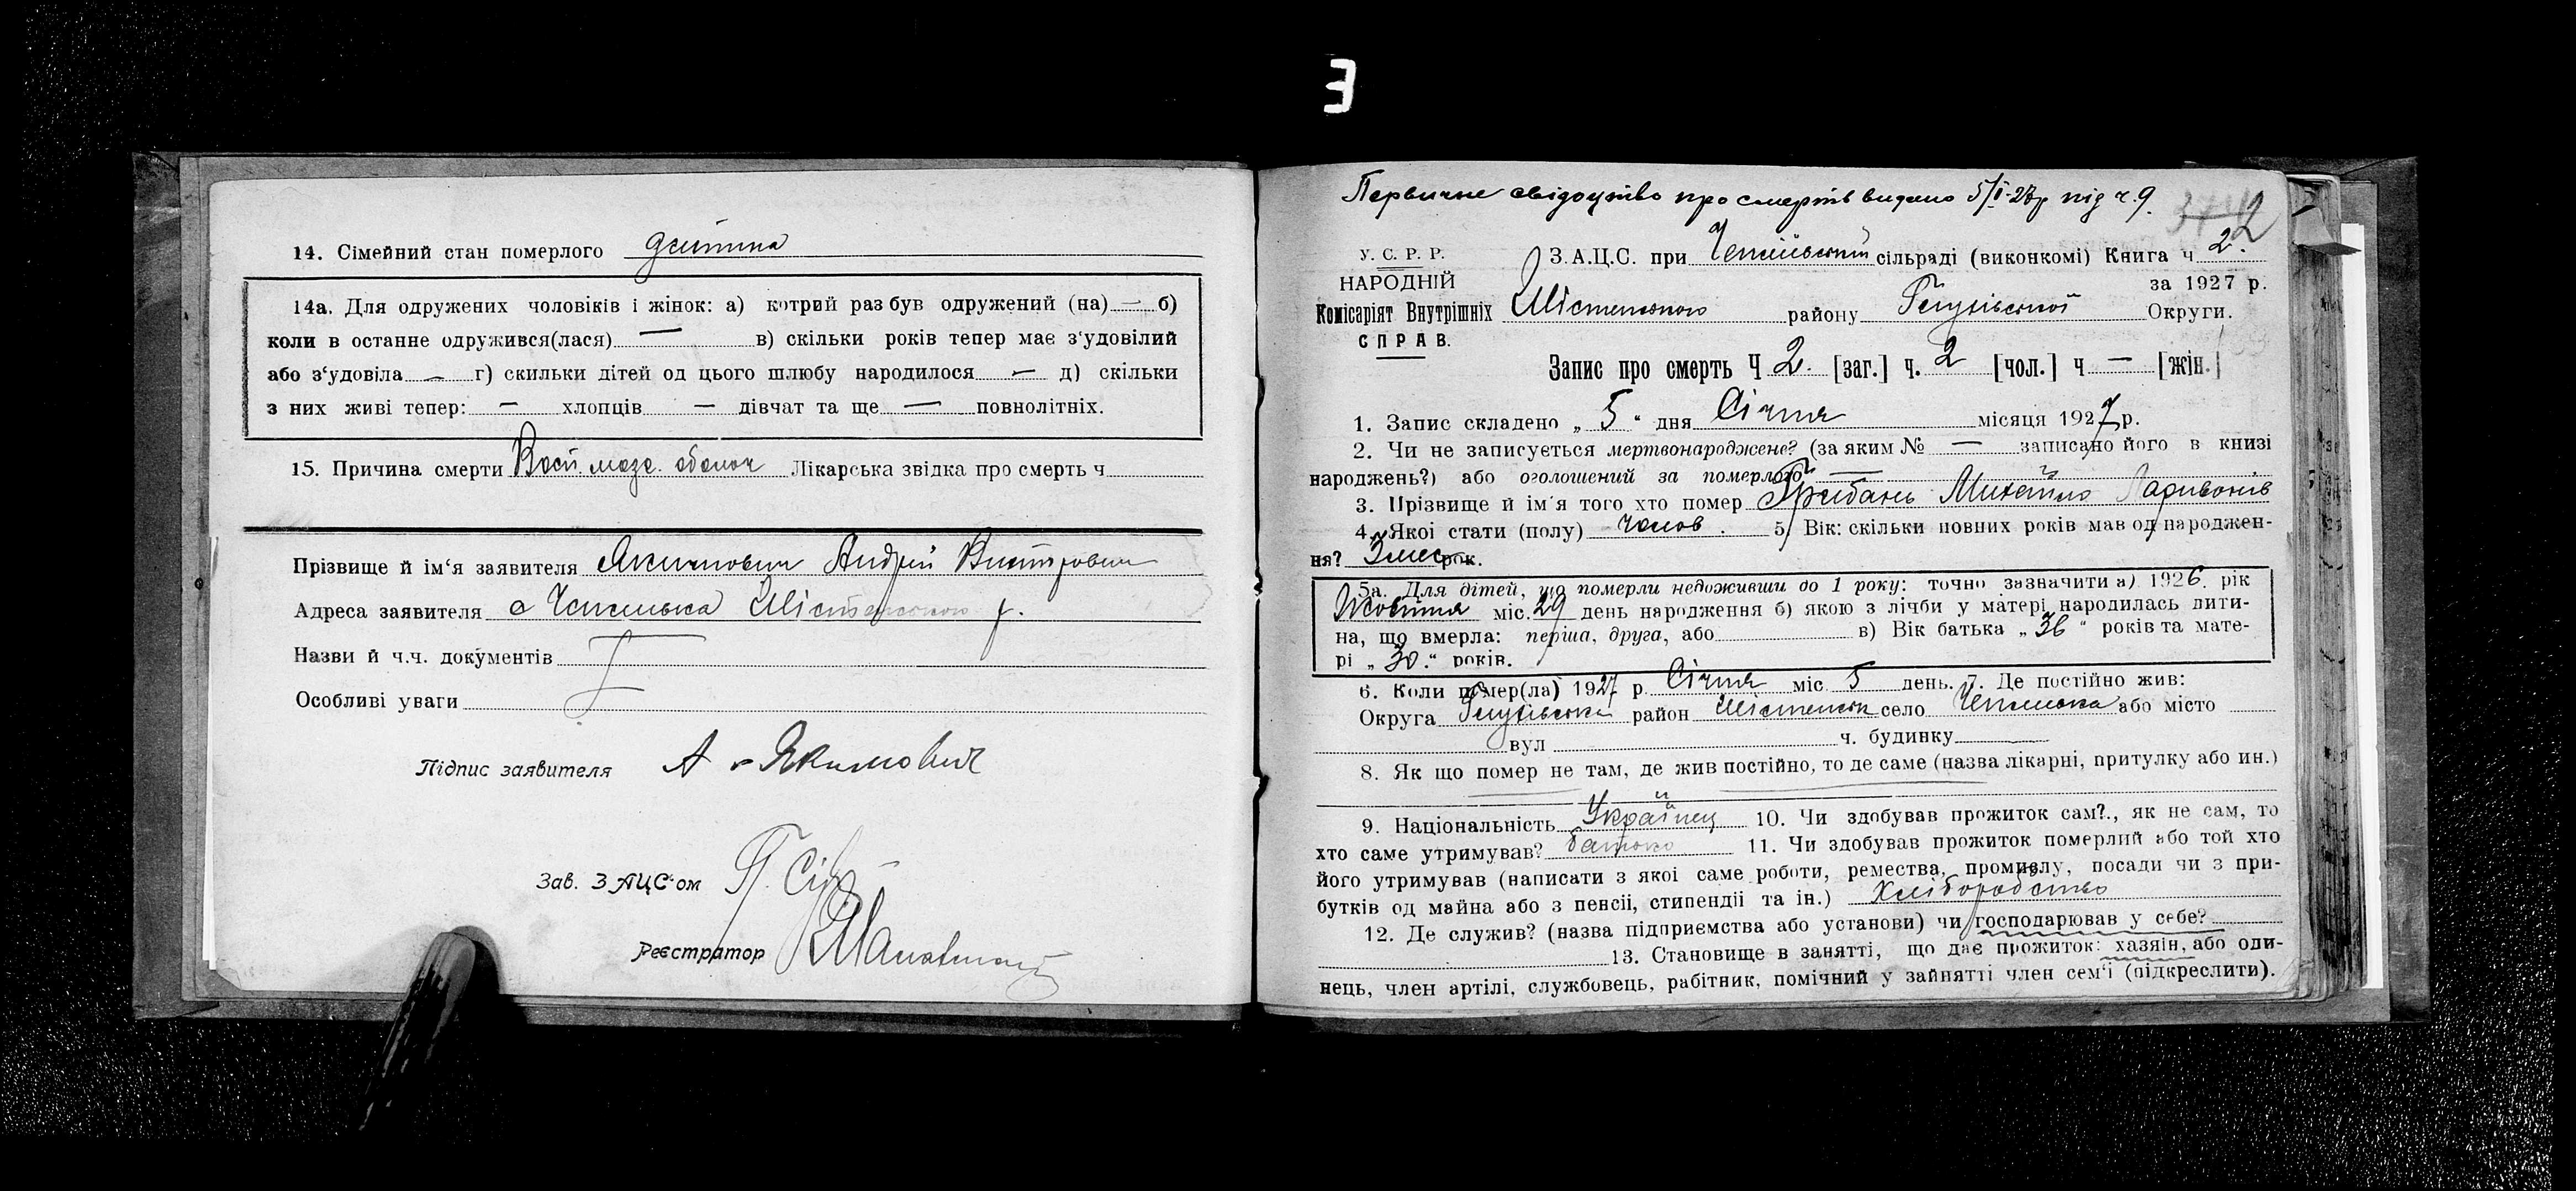 3
14. Сімейний стан померлого дитина
14а. Для одружених чоловіків і жінок: а) котрий раз був одружений (на) — б)
коли в останне одружився(лася) — в) скільки років тепер має з‘удовілий
або з‘удовіла — г) скильки дітей од цього шлюбу народилося — д) скільки
з них живі тепер: — хлопців — дівчат та ще — повнолітніх.
15. Причина смерти Восп. мозг. оболоч Лікарська звідка про смерть ч
Прізвище й ім‘я заявителя Андрій
Адреса заявителя с Чепліевка Шістенського р.
Назви й ч.ч. документів
Особливі уваги
Підпис заявителя А Якимович
Зав. ЗАЦС‘ом П.
Реєстратор
Первичне свідоцтво про смерть видано 5/I-27р під ч. 9.
2
У. С. Р. Р.
НАРОДНІЙ
Комісаріят Внутрішніх
СПРАВ.
З.А.Ц.С. при сільраді (виконкомі) Книга ч 2.
за 1927 р.
Шістенського району Глухівської Округи.
Запис про смерть Ч 2. [заг.] ч. 2 [чол.] ч — [жін.]
1. Запис складено „ 5 “ дня Січня місяця 1927 р.
2. Чи не записується мертвонароджене? (за яким № — записано його в книзі
народжень?) або оголошений за померлого? —
3. Прізвище й ім‘я того хто помер Грибань Михайло Ларивонів
4. Якоі стати (полу) чолов. 5. Вік: скільки повних років мав од народжен-
ня? 3 мес рок.
5а. Для дітей, що померли недоживши до 1 року: точно зазначити а) 1926 рік
Жовтня міс. 29 день народження б) якою з лічби у матері народилась дити-
на, що вмерла: перша, друга, або в) Вік батька „ 36 “ років та мате-
рі „ 30. “ років.
6. Коли помер(ла) 1927 р. Січня міс 5 день. 7. Де постійно жив:
Округа Глухівська район Шістенськ село або місто
вул ч. будинку
8. Як що помер не там, де жив постійно, то де саме (назва лікарні, притулку або ин.)
9. Національність Українец 10. Чи здобував прожиток сам?., як не сам, то
хто саме утримував? батько 11. Чи здобував прожиток померлий або той хто
його утримував (написати з якоі саме роботи, ремества, промислу, посади чи з при-
бутків од майна або з пенсіі, стипендіі та ін.) Хліборобство
12. Де служив? (назва підприємства або установи) чи господарював у себе?
13. Становище в занятті, що дає прожиток: хазяін, або оди-
нець, член артілі, службовець, рабітник, помічний у зайнятті член сем‘і (підкреслити).